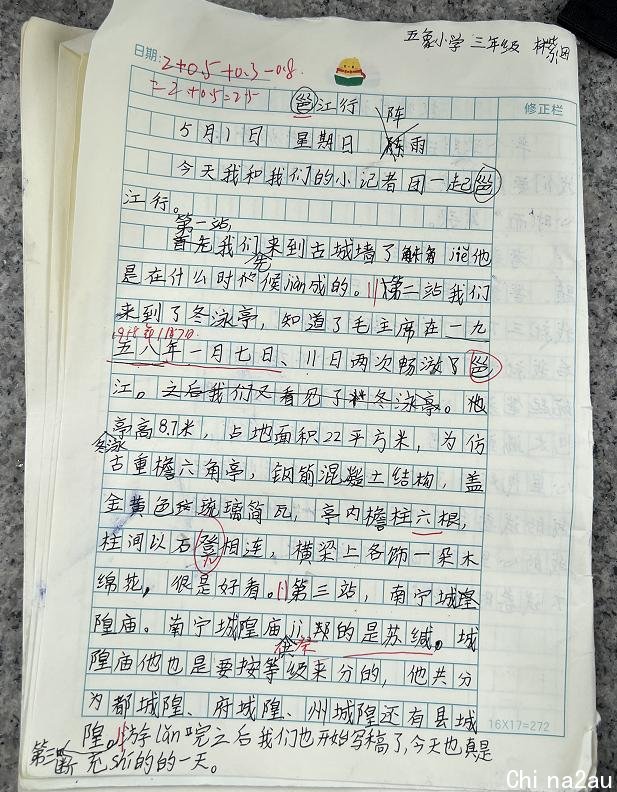 五象小学 三年级
日期:
2+0.5+0.3-0.8
=2+0.5=2.5
修正栏
邕江行
阵
5月1日 星期日 雨
今天我和我们的小记者团一起邕
江行。
第一站,
首先我们来到古城墙了解 他
是在什么时候 成的。第二站我们
来到了冬泳亭,知道了毛主席在一九
1958年1月7日
五八年一月七日 11日两次畅游了邕
江。之后我们又看见了冬泳亭。他
冬泳
亭高8.7米,占地面积22平方米,为仿
古重檐六角亭,钢筋混凝土结构,盖
金黄色琉璃筒瓦,亭内檐柱六根,
柱间以石登相连,横梁上各饰一朵木
绵花,很是好看。第三站,南宁城隍
隍庙。南宁城隍庙 的是苏缄。城
隍庙他也是要按等级来分的,他共分
为都城隍、府城隍、州城隍还有县城
隍。游lǎn完之后我们也开始写稿了,今天也真是
第三断
充shí的的一天。
16X17=272
Chi na2au